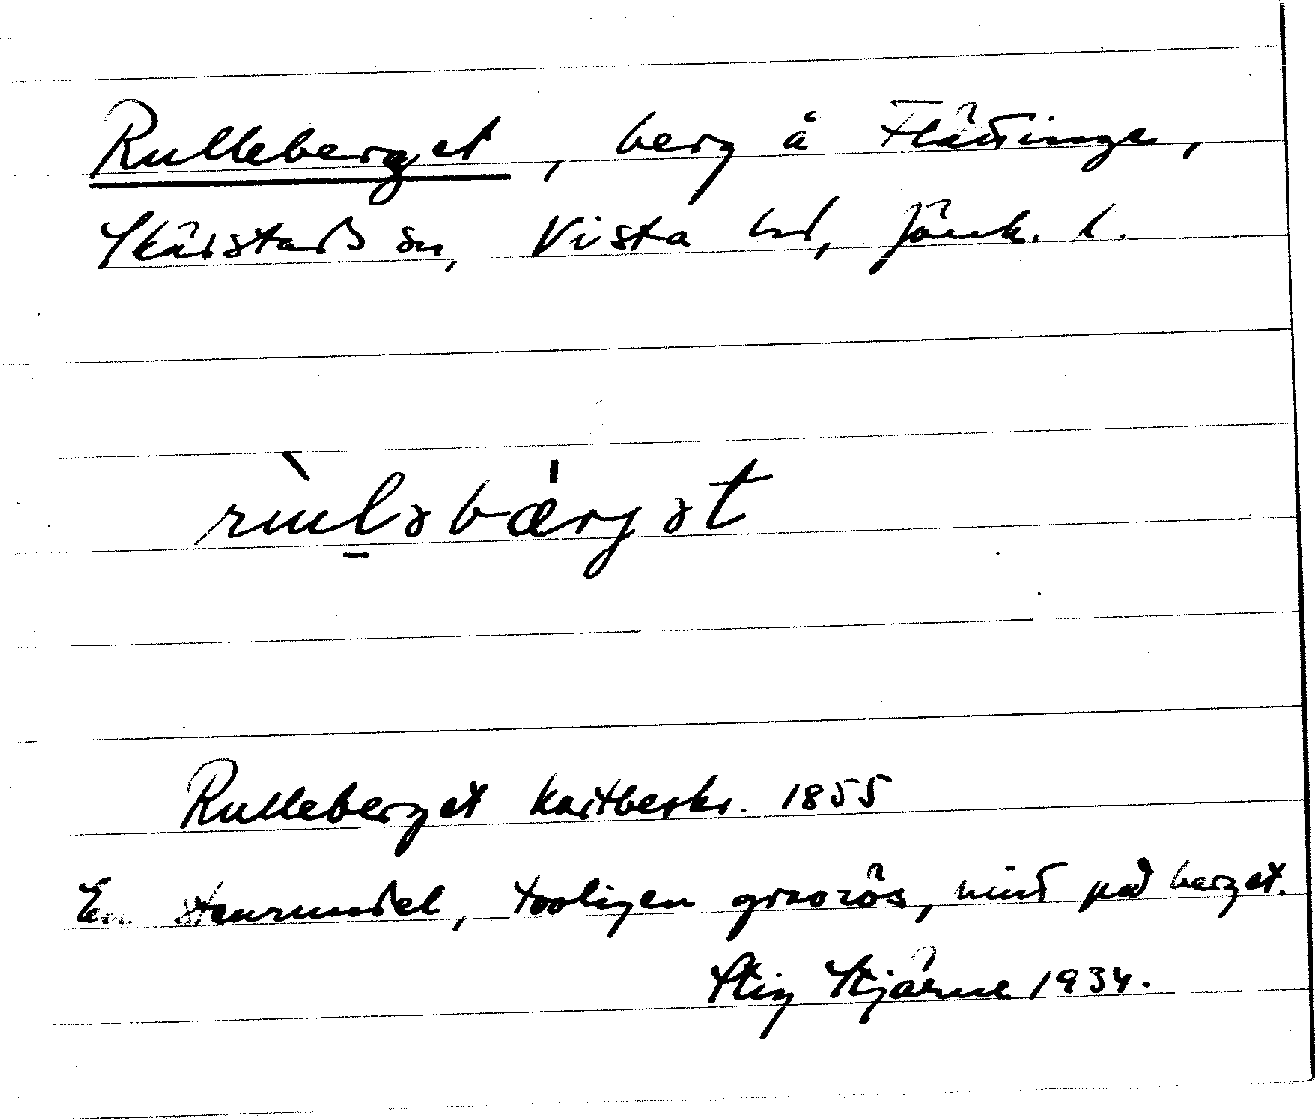 Rulleberget, berg å Flättinge,
Skärstads sn, Vista hd, Jönk. l.
rùl̠əbǽrjət
Rulleberget kartbeskr. 1855
En stenrundel, troligen gravrös, mitt på berget.
Stig Stjärne 1934.